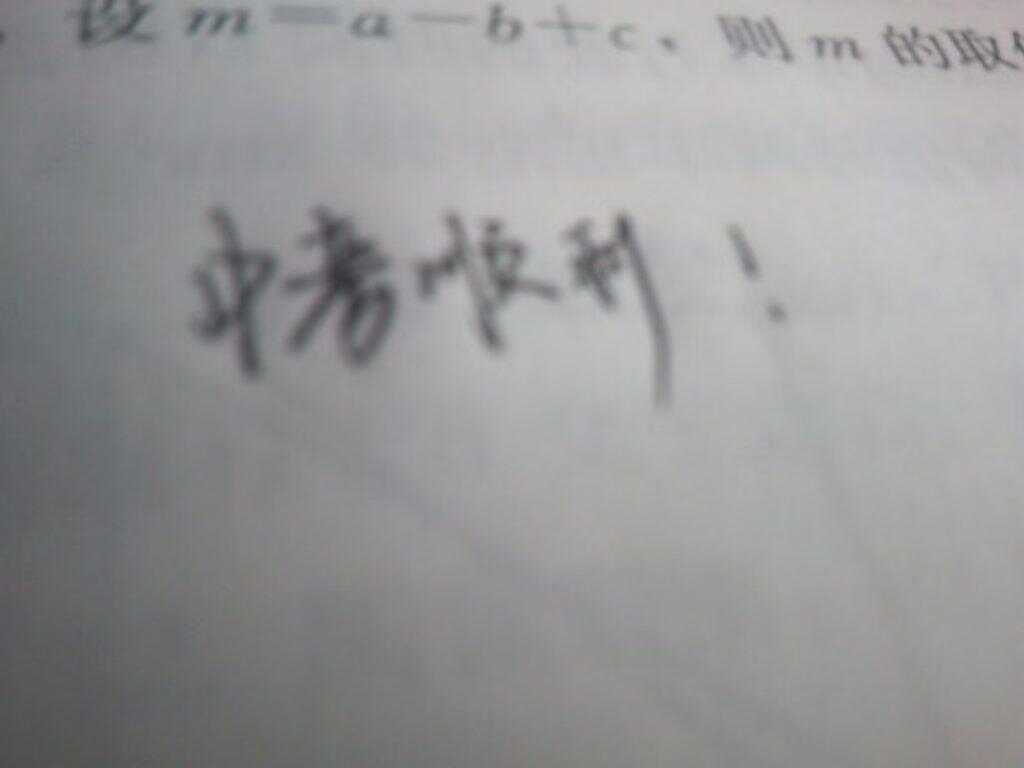 设m=a-b+c,则m的取
中考顺利!